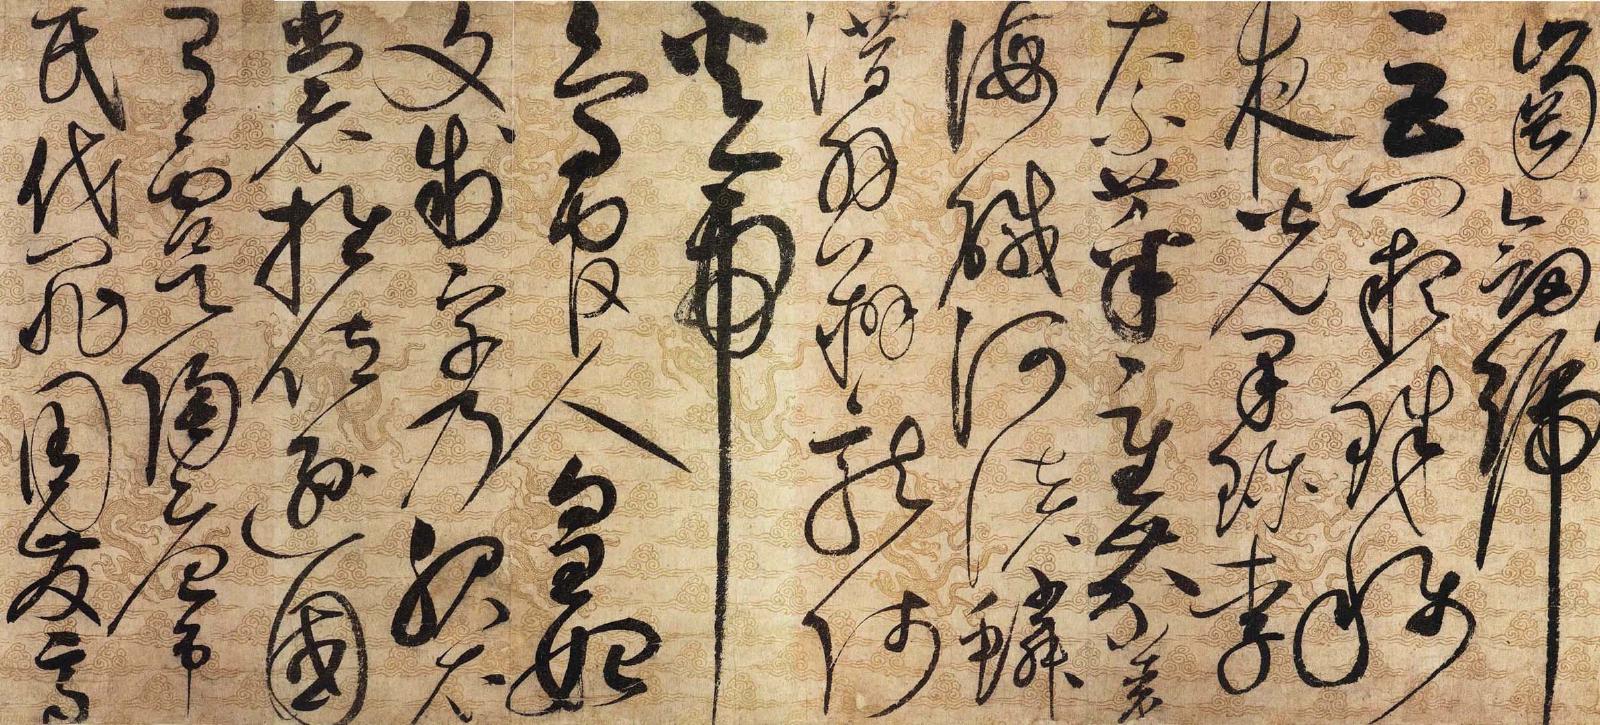 崗劍號
巨闕珠稱
夜光果珍李
柰菜重芥薑
海鹹河淡鱗
潛羽翔龍師
火帝
鳥官人皇始
文制字乃服衣
裳推位遜國
有虞陶唐弔
民伐罪周發商